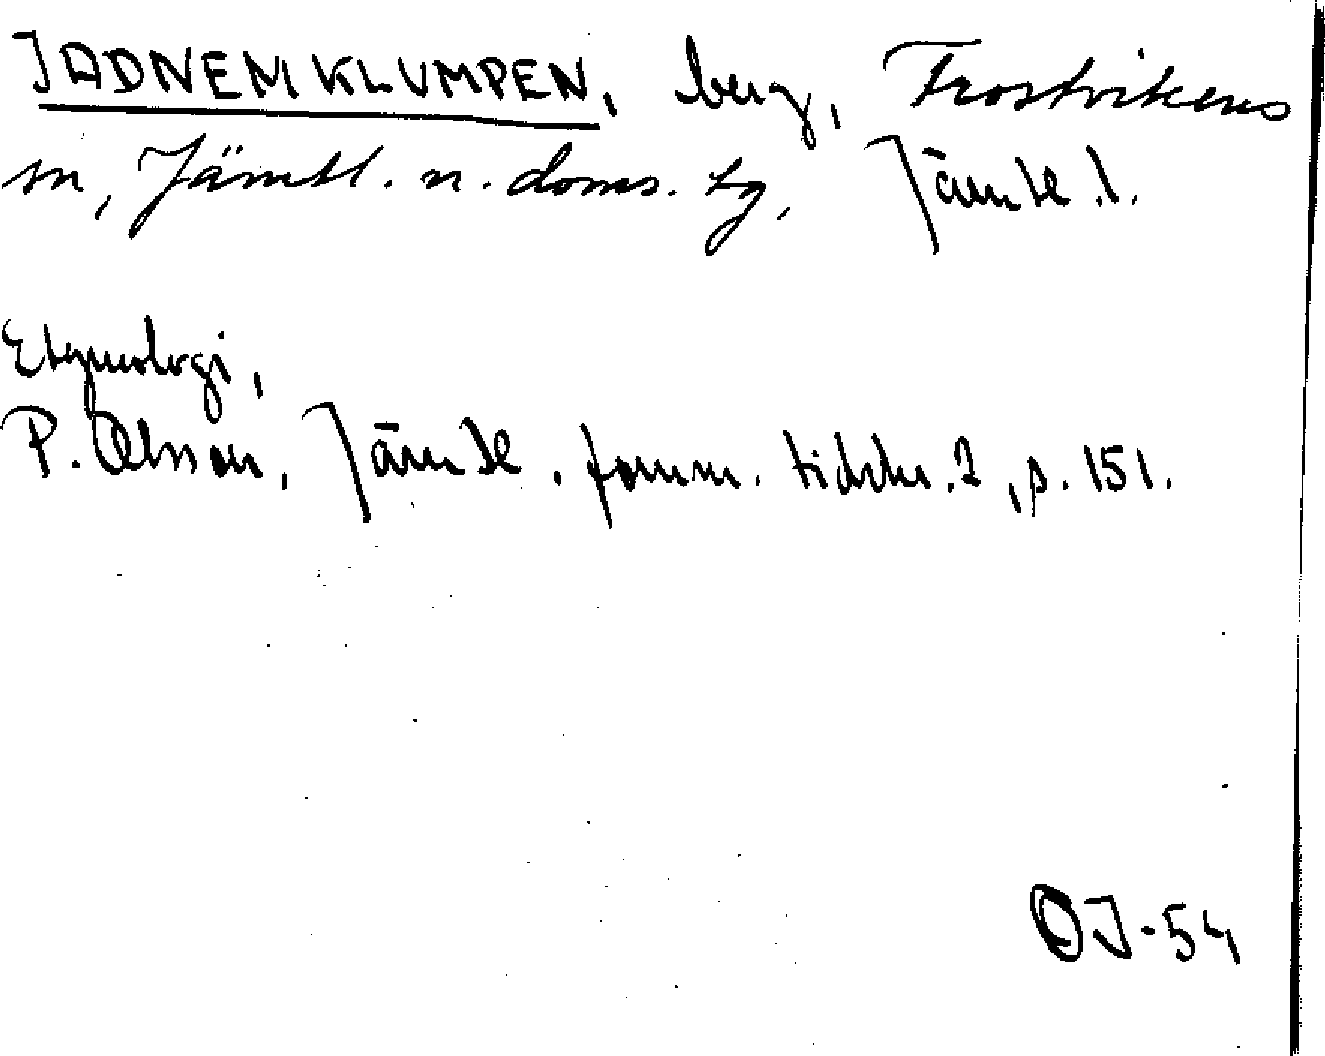 JADNEMKLUMPEN, berg, Frostvikens
sn, Jämtl. n. doms. tg, Jämtl. l.
Etymologi,
P. Olsson, Jämtl. fornm. tidskr. 2, s. 151.
OJ-54